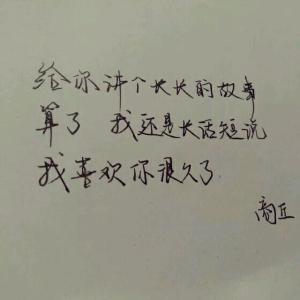 给你讲个长长的故事
算了 我还是长话短说
我喜欢你很久了
商丘